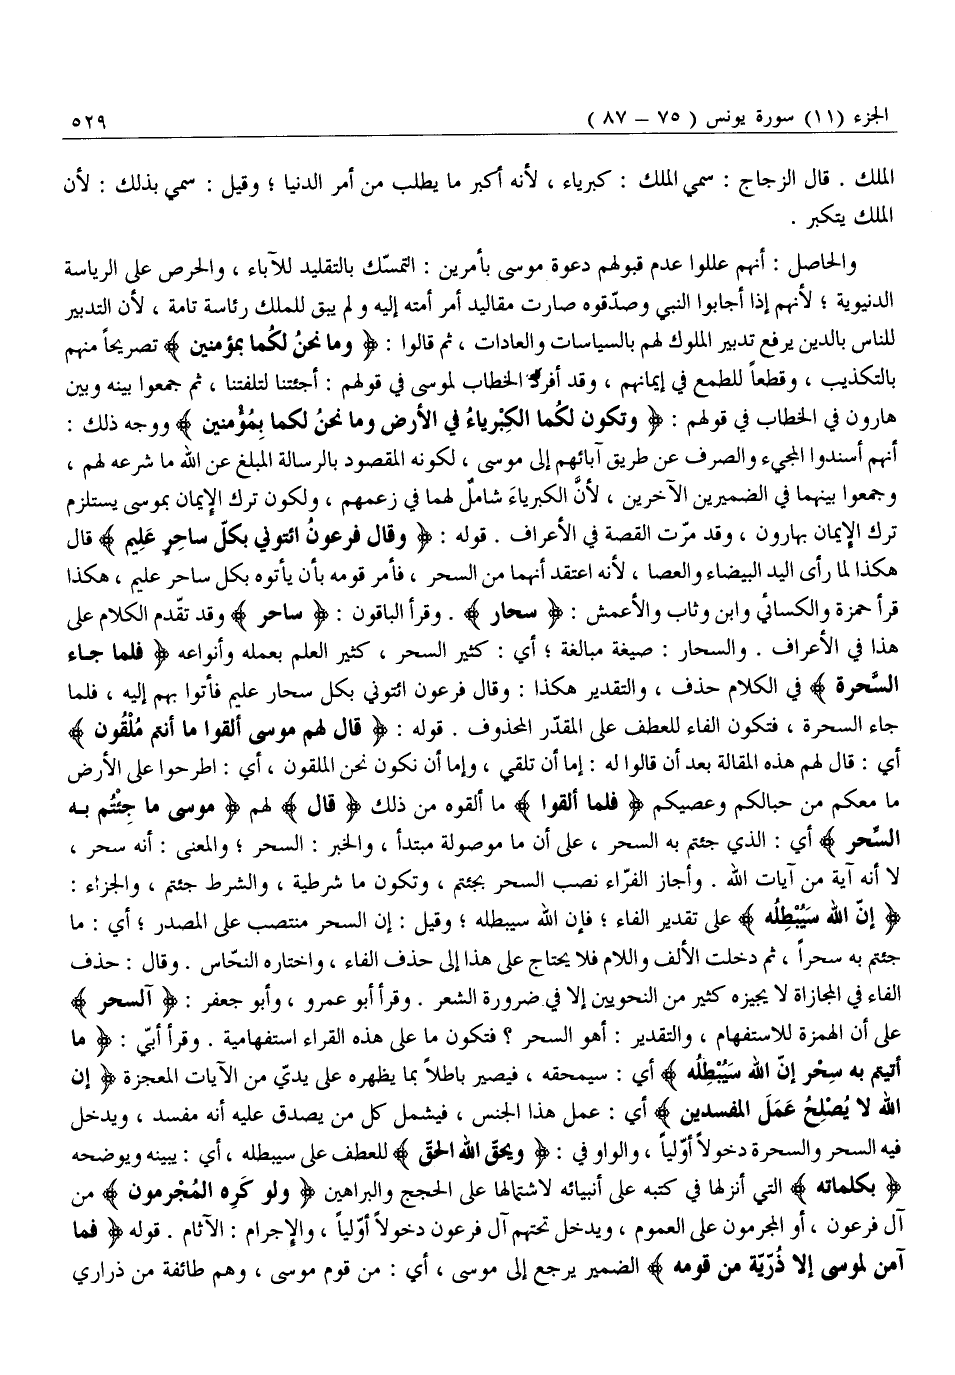 الجزء (١١) سورة يونس ( ٧٥ – ٨٧ ) ٥٢٩
الملك . قال الزجاج : سمي الملك : كبرياء ، لأنه أكبر ما يطلب من أمر الدنيا ؛ وقيل : سمي بذلك : لأن
الملك يتكبر .
والحاصل : أنهم عللوا عدم قبولهم دعوة موسى بأمرين : التمسّك بالتقليد للآباء ، والحرص على الرياسة
الدنيوية ؛ لأنهم إذا أجابوا النبي وصدّقوه صارت مقاليد أمر أمته إليه و لم يبق للملك رئاسة تامة ، لأن التدبير
للناس بالدين يرفع تدبير الملوك لهم بالسياسات والعادات ، ثم قالوا : ﴿ وما نحنُ لكُما بمؤمنين ﴾ تصريحاً منهم
بالتكذيب ، وقطعاً للطمع في إيمانهم ، وقد أفرد الخطاب لموسى في قولهم : أجئتنا لتلفتنا ، ثم جمعوا بينه وبين
هارون في الخطاب في قولهم : ﴿ وتكون لكُما الكِبْرياءُ في الأرض وما نحنُ لكما بِمُؤْمنين ﴾ ووجه ذلك :
أنهم أسندوا المجيء والصرف عن طريق آبائهم إلى موسى ، لكونه المقصود بالرسالة المبلغ عن الله ما شرعه لهم ،
وجمعوا بينهما في الضميرين الآخرين ، لأنَّ الكبرياءَ شاملٌ لهما في زعمهم ، ولكون ترك الإيمان بموسى يستلزم
ترك الإيمان بهارون ، وقد مرّت القصة في الأعراف . قوله : ﴿ وقال فرعونُ ائتوني بكلّ ساحِرٍ عَلِيم ﴾ قال
هكذا لما رأى اليد البيضاء والعصا ، لأنه اعتقد أنهما من السحر ، فأمر قومه بأن يأتوه بكل ساحر عليم ، هكذا
قرأ حمزة والكسائي وابن وثاب والأعمش : ﴿ سحار ﴾ . وقرأ الباقون : ﴿ ساحر ﴾ وقد تقّدم الكلام على
هذا في الأعراف . والسحار : صيغة مبالغة ؛ أي : كثير السحر ، كثير العلم بعمله وأنواعه ﴿ فلما جاء
السَّحرة ﴾ في الكلام حذف ، والتقدير هكذا : وقال فرعون ائتوني بكل سحار عليم فأتوا بهم إليه ، فلما
جاء السحرة ، فتكون الفاء للعطف على المقدّر المحذوف . قوله : ﴿ قال لهم موسى ألقوا ما أنتم مُلْقُون ﴾
أي : قال لهم هذه المقالة بعد أن قالوا له : إما أن تلقي ، وإما أن نكون نحن الملقون ، أي : اطرحوا على الأرض
ما معكم من حبالكم وعصيكم ﴿ فلما ألقوا ﴾ ما ألقوه من ذلك ﴿ قال ﴾ لهم ﴿ موسى ما جِئْتُم بـه
السِّحر ﴾ أي : الذي جئتم به السحر ، على أن ما موصولة مبتدأ ، والخبر : السحر ؛ والمعنى : أنه سحر ،
لا أنه آية من آيات الله . وأجاز الفرّاء نصب السحر بجئتم ، وتكون ما شرطية ، والشرط جئتم ، والجزاء :
﴿ إنّ الله سَيُبْطِلُه ﴾ على تقدير الفاء ؛ فإن الله سيبطله ؛ وقيل : إن السحر منتصب على المصدر ؛ أي : ما
جئتم به سحراً ، ثم دخلت الألف واللام فلا يحتاج على هذا إلى حذف الفاء ، واختاره النحّاس . وقال : حذف
الفاء في المجازاة لا يجيزه كثير من النحويين إلا في ضرورة الشعر . وقرأ أبو عمرو ، وأبو جعفر : ﴿ آلسحر ﴾
على أن الهمزة للاستفهام ، والتقدير : أهو السحر ؟ فتكون ما على هذه القراء استفهامية . وقرأ أبيّ : ﴿ ما
أتيتم به سِحْر إنّ الله سَيُبْطِلُه ﴾ أي : سيمحقه ، فيصير باطلاً بما يظهره على يديّ من الآيات المعجزة ﴿ إن
الله لا يُصْلِحُ عَمَلَ المفسدين ﴾ أي : عمل هذا الجنس ، فيشمل كل من يصدق عليه أنه مفسد ، ويدخل
فيه السحر والسحرة دخولاً أوّلياً ، والواو في : ﴿ ويحقّ الله الحقّ ﴾ للعطف على سيبطله ، أي : يبينه ويوضحه
﴿ بكلماته ﴾ التي أنزلها في كتبه على أنبيائه لاشتمالها على الحجج والبراهين ﴿ ولو كَرِه المُجْرمون ﴾ من
آل فرعون ، أو المجرمون على العموم ، ويدخل تحتهم آل فرعون دخولاً أوّلياً ، والإجرام : الآثام . قوله ﴿ فما
آمن لموسى إلا ذُرّيّة من قومه ﴾ الضمير يرجع إلى موسى ، أي : من قوم موسى ، وهم طائفة من ذراري